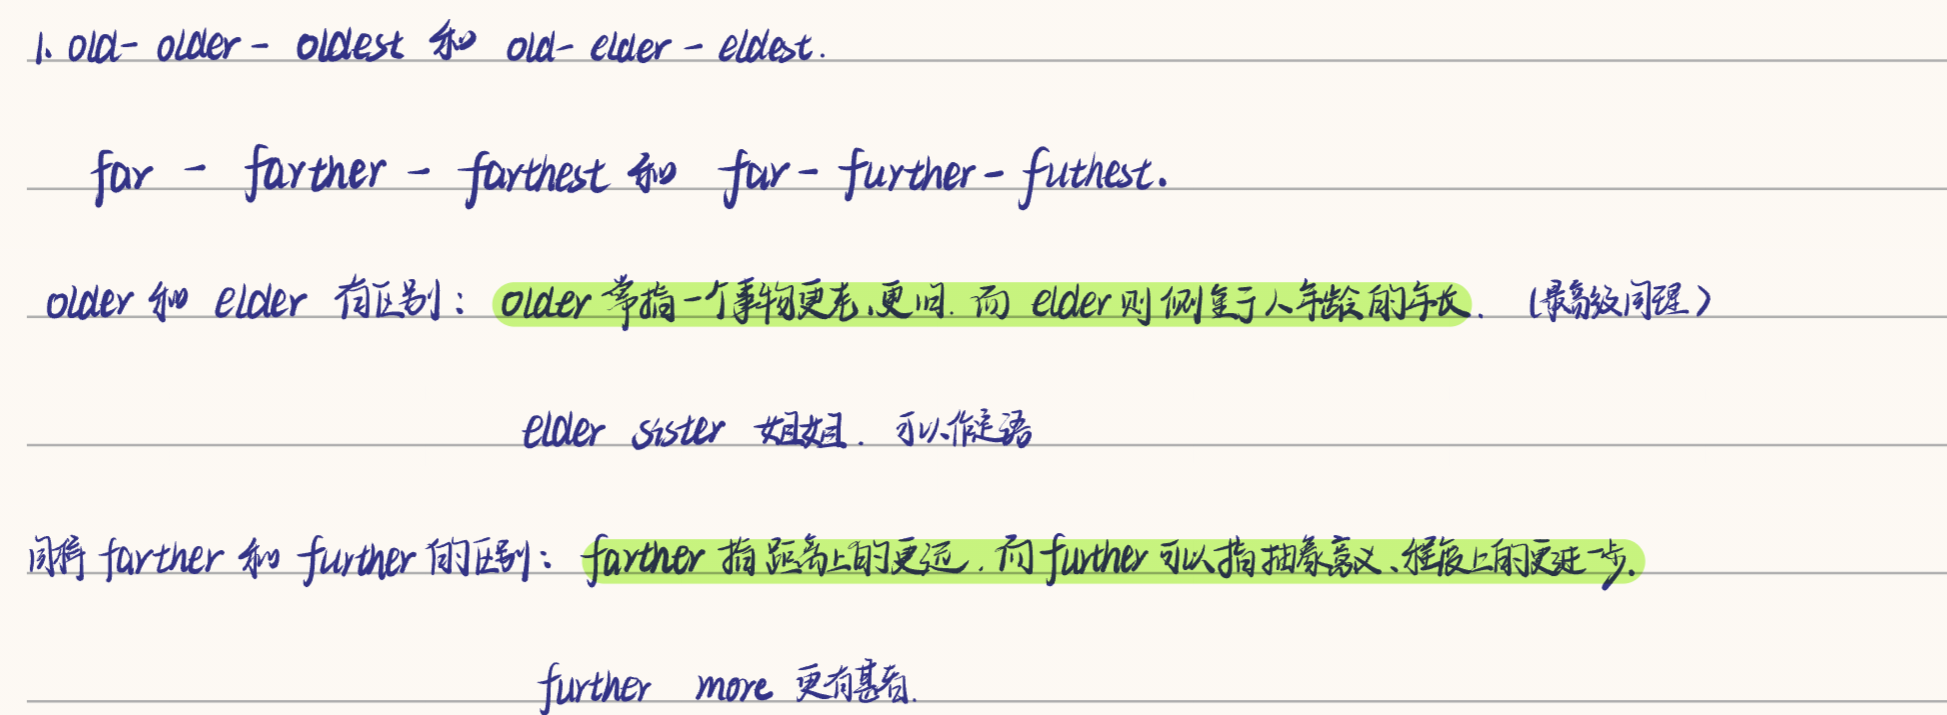 1. old - older - oldest 和 old - elder - eldest.
far - farther - farthest 和 far - further - futhest.
older 和 elder 有区别： older 常指一个事物更老、更旧. 而 elder 则侧重于人年龄的年长. （最高级同理）
elder sister 姐姐. 可以作定语
同样 farther 和 further 的区别： farther 指距离上的更远. 而 further 可以指抽象意义、程度上的更进一步.
further more 更有甚者.